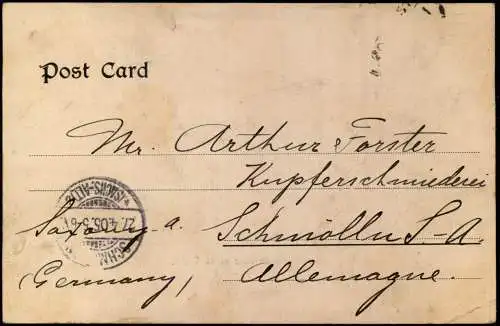 Post Card
Mr. Arthur Forster
Kupferschmiederei
Saxony-a. Schmölln S-A.
(Germany) Allemagne.
(SACHS.-ALTB.)
27.4.05.5-6N
SCHM